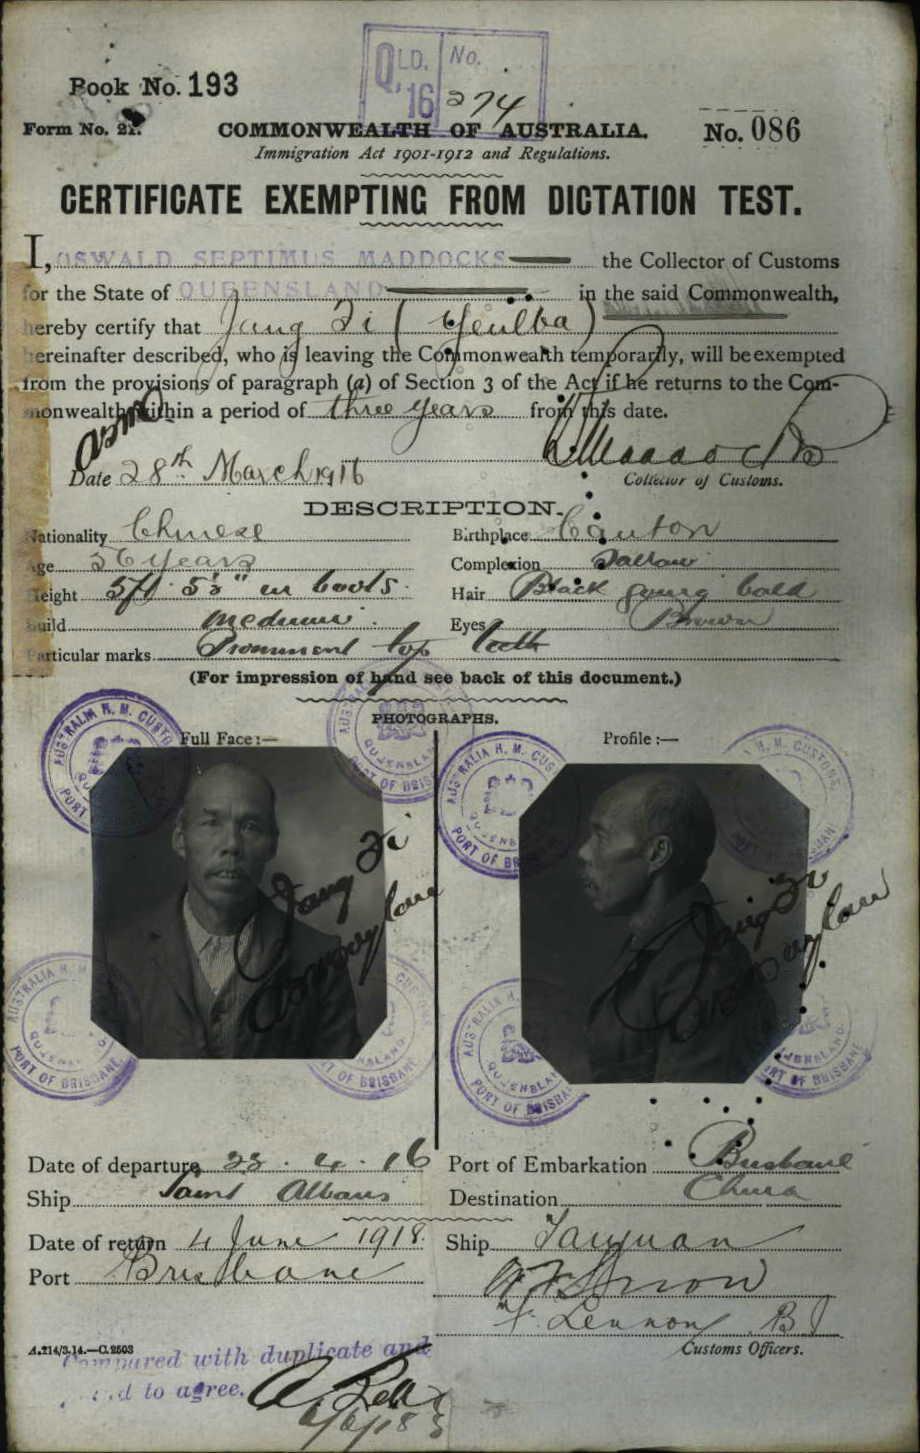 QLD. No.
16 274
Book No. 193
Form No. 21. COMMONWEALTH OF AUSTRALIA. No. 086
Immigration Act 1901-1912 and Regulations.
CERTIFICATE EXEMPTING FROM DICTATION TEST.
I, OSWALD SEPTIMUS MADDOCKS the Collector of Customs
for the State of QUEENSLAND in the said Commonwealth,
hereby certify that Jang Di (Yeulba)
hereinafter described, who is leaving the Commonwealth temporarily, will be exempted
from the provisions of paragraph (a) of Section 3 of the Act if he returns to the Com-
monwealth within a period of three years from this date.
Date 28th March 1916
Collector of Customs.
DESCRIPTION.
Nationality Chinese Birthplace Canton
Age 56 years Complexion Sallow
Height 5ft 5½" in boots. Hair Black going bald
Build medium. Eyes Brown
Particular marks Prominent top teeth
(For impression of hand see back of this document.)
PHOTOGRAPHS.
Full Face :— Profile :—
AUSTRALIA H. M. CUSTOMS QUEENSLAND PORT OF BRISBANE
Date of departure 22. 4. 16 Port of Embarkation Brisbane
Ship Saint Albans Destination China
Date of return 4 June 1918. Ship Taiyuan
Port Brisbane
Lennon
A.214/3.14.—C.2503 Customs Officers.
Compared with duplicate and
found to agree.
6/6/18